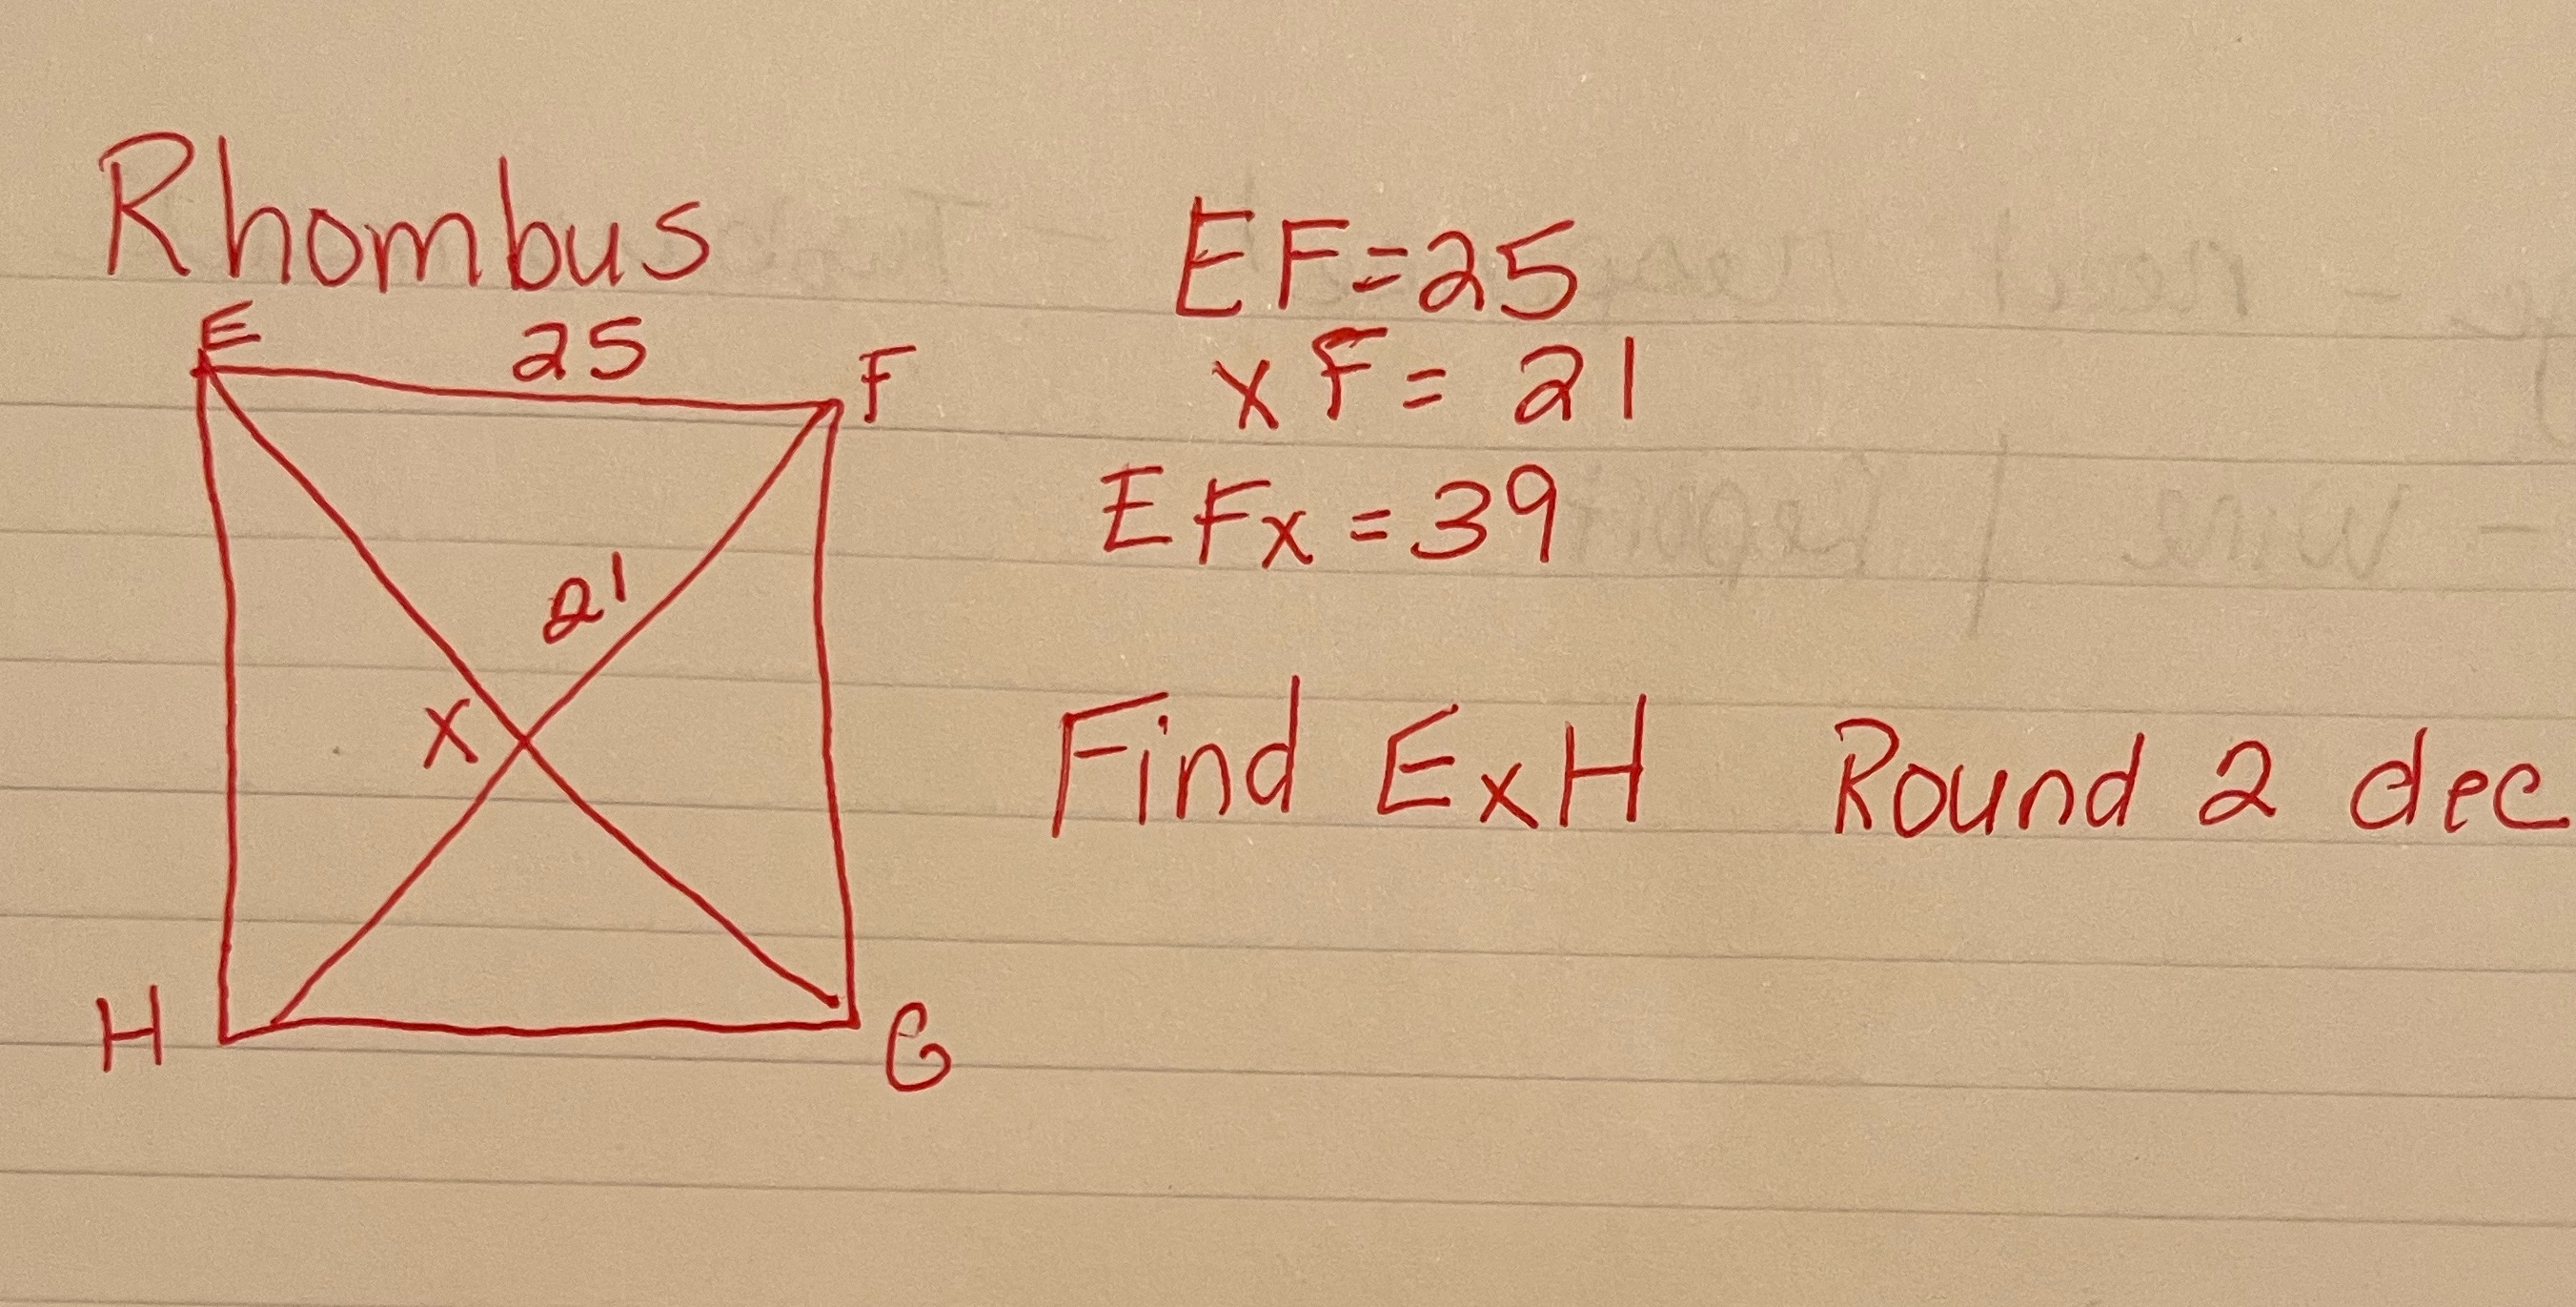 Rhombus
E 25 F
21
X
H G
EF=25
xF= 21
EFx = 39
Find ExH Round 2 dec